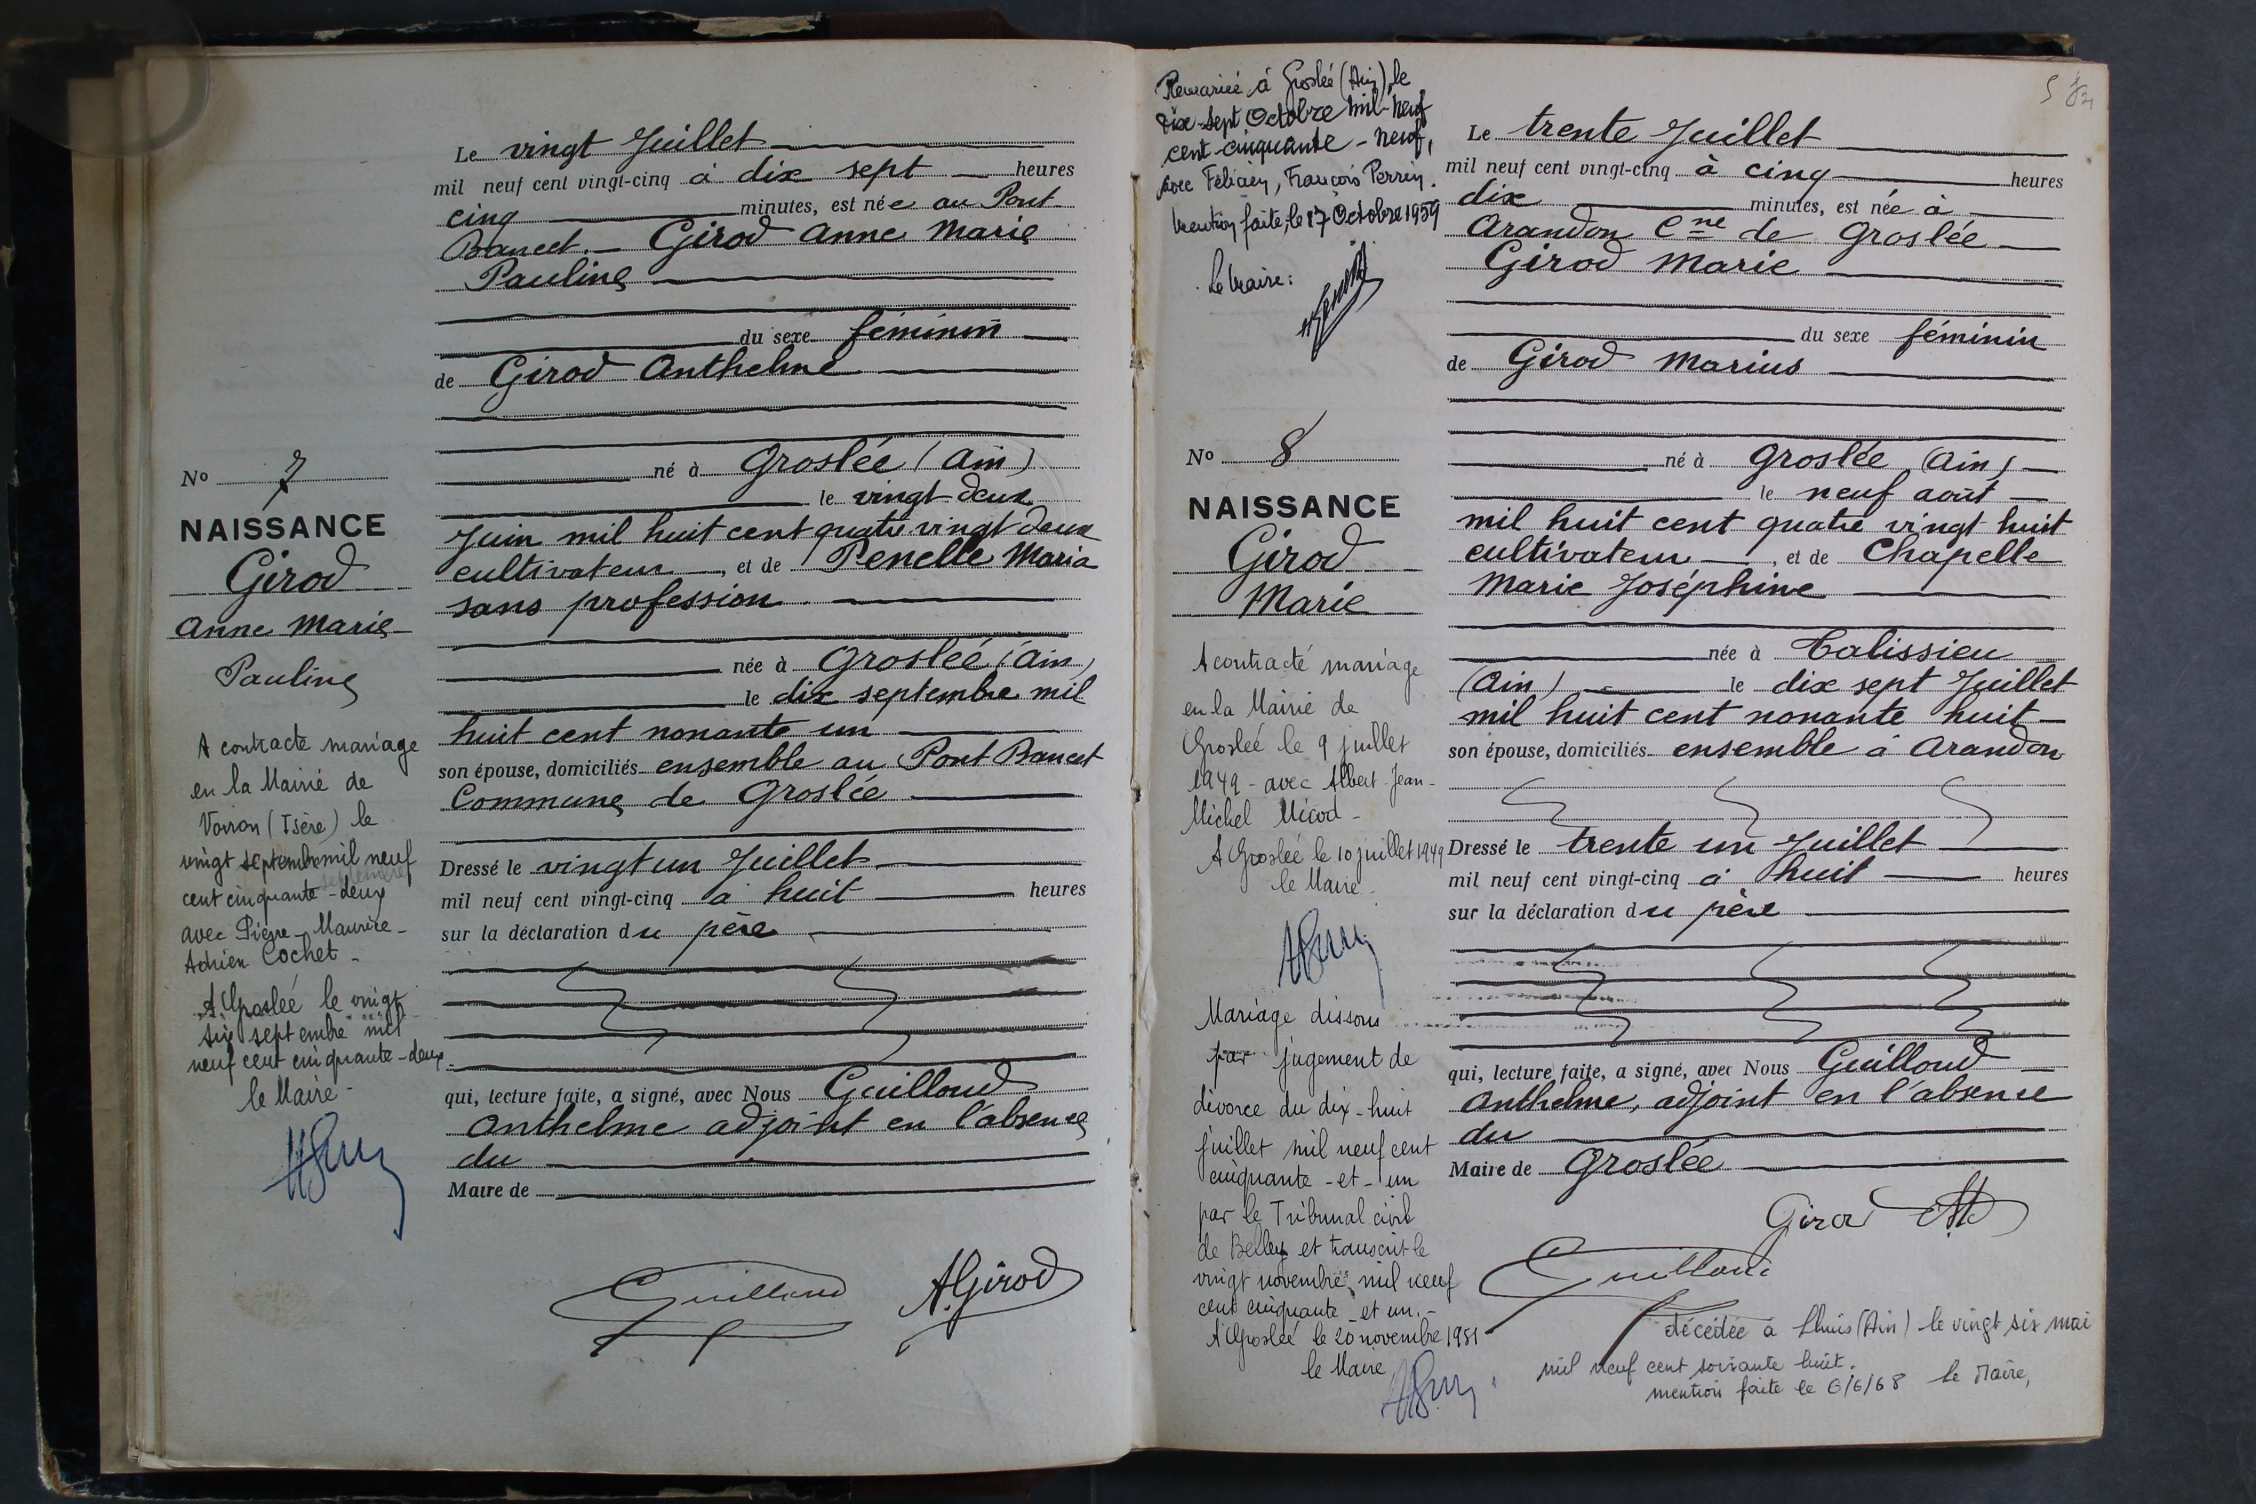 No 7
NAISSANCE
Girod
Anne Marie
Pauline
A contracté mariage
en la Mairie de
Voiron (Isère) le
vingt septembre mil neuf
cent cinquante-deux
avec Pierre-Maurice-
Adrien Cochet-
A Groslée le vingt
six septembre mil
neuf cent cinquante-deux-
le Maire-
Le vingt Juillet
mil neuf cent vingt-cinq à dix sept heures
cinq minutes, est née au Pont
Bancet. Girod Anne Marie
Pauline
du sexe féminin
de Girod Anthelme
né à Groslée (Ain)
le vingt deux
Juin mil huit cent quatre vingt deux
cultivateur, et de Penelle Maria
sans profession
née à Groslée (Ain)
le dix septembre mil
huit cent nonante un
son épouse, domiciliés ensemble au Pont Bancet
Commune de Groslée
Dressé le vingt un Juillet
mil neuf cent vingt-cinq à huit heures
sur la déclaration du père
qui, lecture faite, a signé, avec Nous Guilloud
Anthelme adjoint en l'absence
du
Maire de
Guilloud A. Girod
Remariée à Groslée (Ain), le
dix-sept Octobre mil-neuf
cent-cinquante-neuf,
avec Félicien, François Perrin.
Mention faite, le 17 Octobre 1959
Le Maire:
No 8
NAISSANCE
Girod
Marie
A contracté mariage
en la Mairie de
Groslée le 9 juillet
1949 - avec Albert-Jean-
Michel Micod-
A Groslée le 10 juillet 1949
le Maire-
Mariage dissous
par jugement de
divorce du dix-huit
juillet mil neuf cent
cinquante-et-un
par le Tribunal civil
de Belley et transcrit le
vingt novembre mil neuf
cent cinquante-et un.-
A Groslée le 20 novembre 1951
le Maire
Le trente Juillet
mil neuf cent vingt-cinq à cinq heures
dix minutes, est née à
Arandon Cne de Groslée
Girod Marie
du sexe féminin
de Girod Marius
né à Groslée (Ain)
le neuf août
mil huit cent quatre vingt huit
cultivateur, et de Chapelle
Marie Joséphine
née à Talissieu
(Ain) le dix sept Juillet
mil huit cent nonante huit
son épouse, domiciliés ensemble à Arandon
Dressé le trente un Juillet
mil neuf cent vingt-cinq à huit heures
sur la déclaration du père
qui, lecture faite, a signé, avec Nous Guilloud
Anthelme, adjoint en l'absence
du
Maire de Groslée
Girod
Guilloud
décédée à Lhuis (Ain) le vingt six mai
mil neuf cent soixante huit.
mention faite le 6/6/68 le Maire,